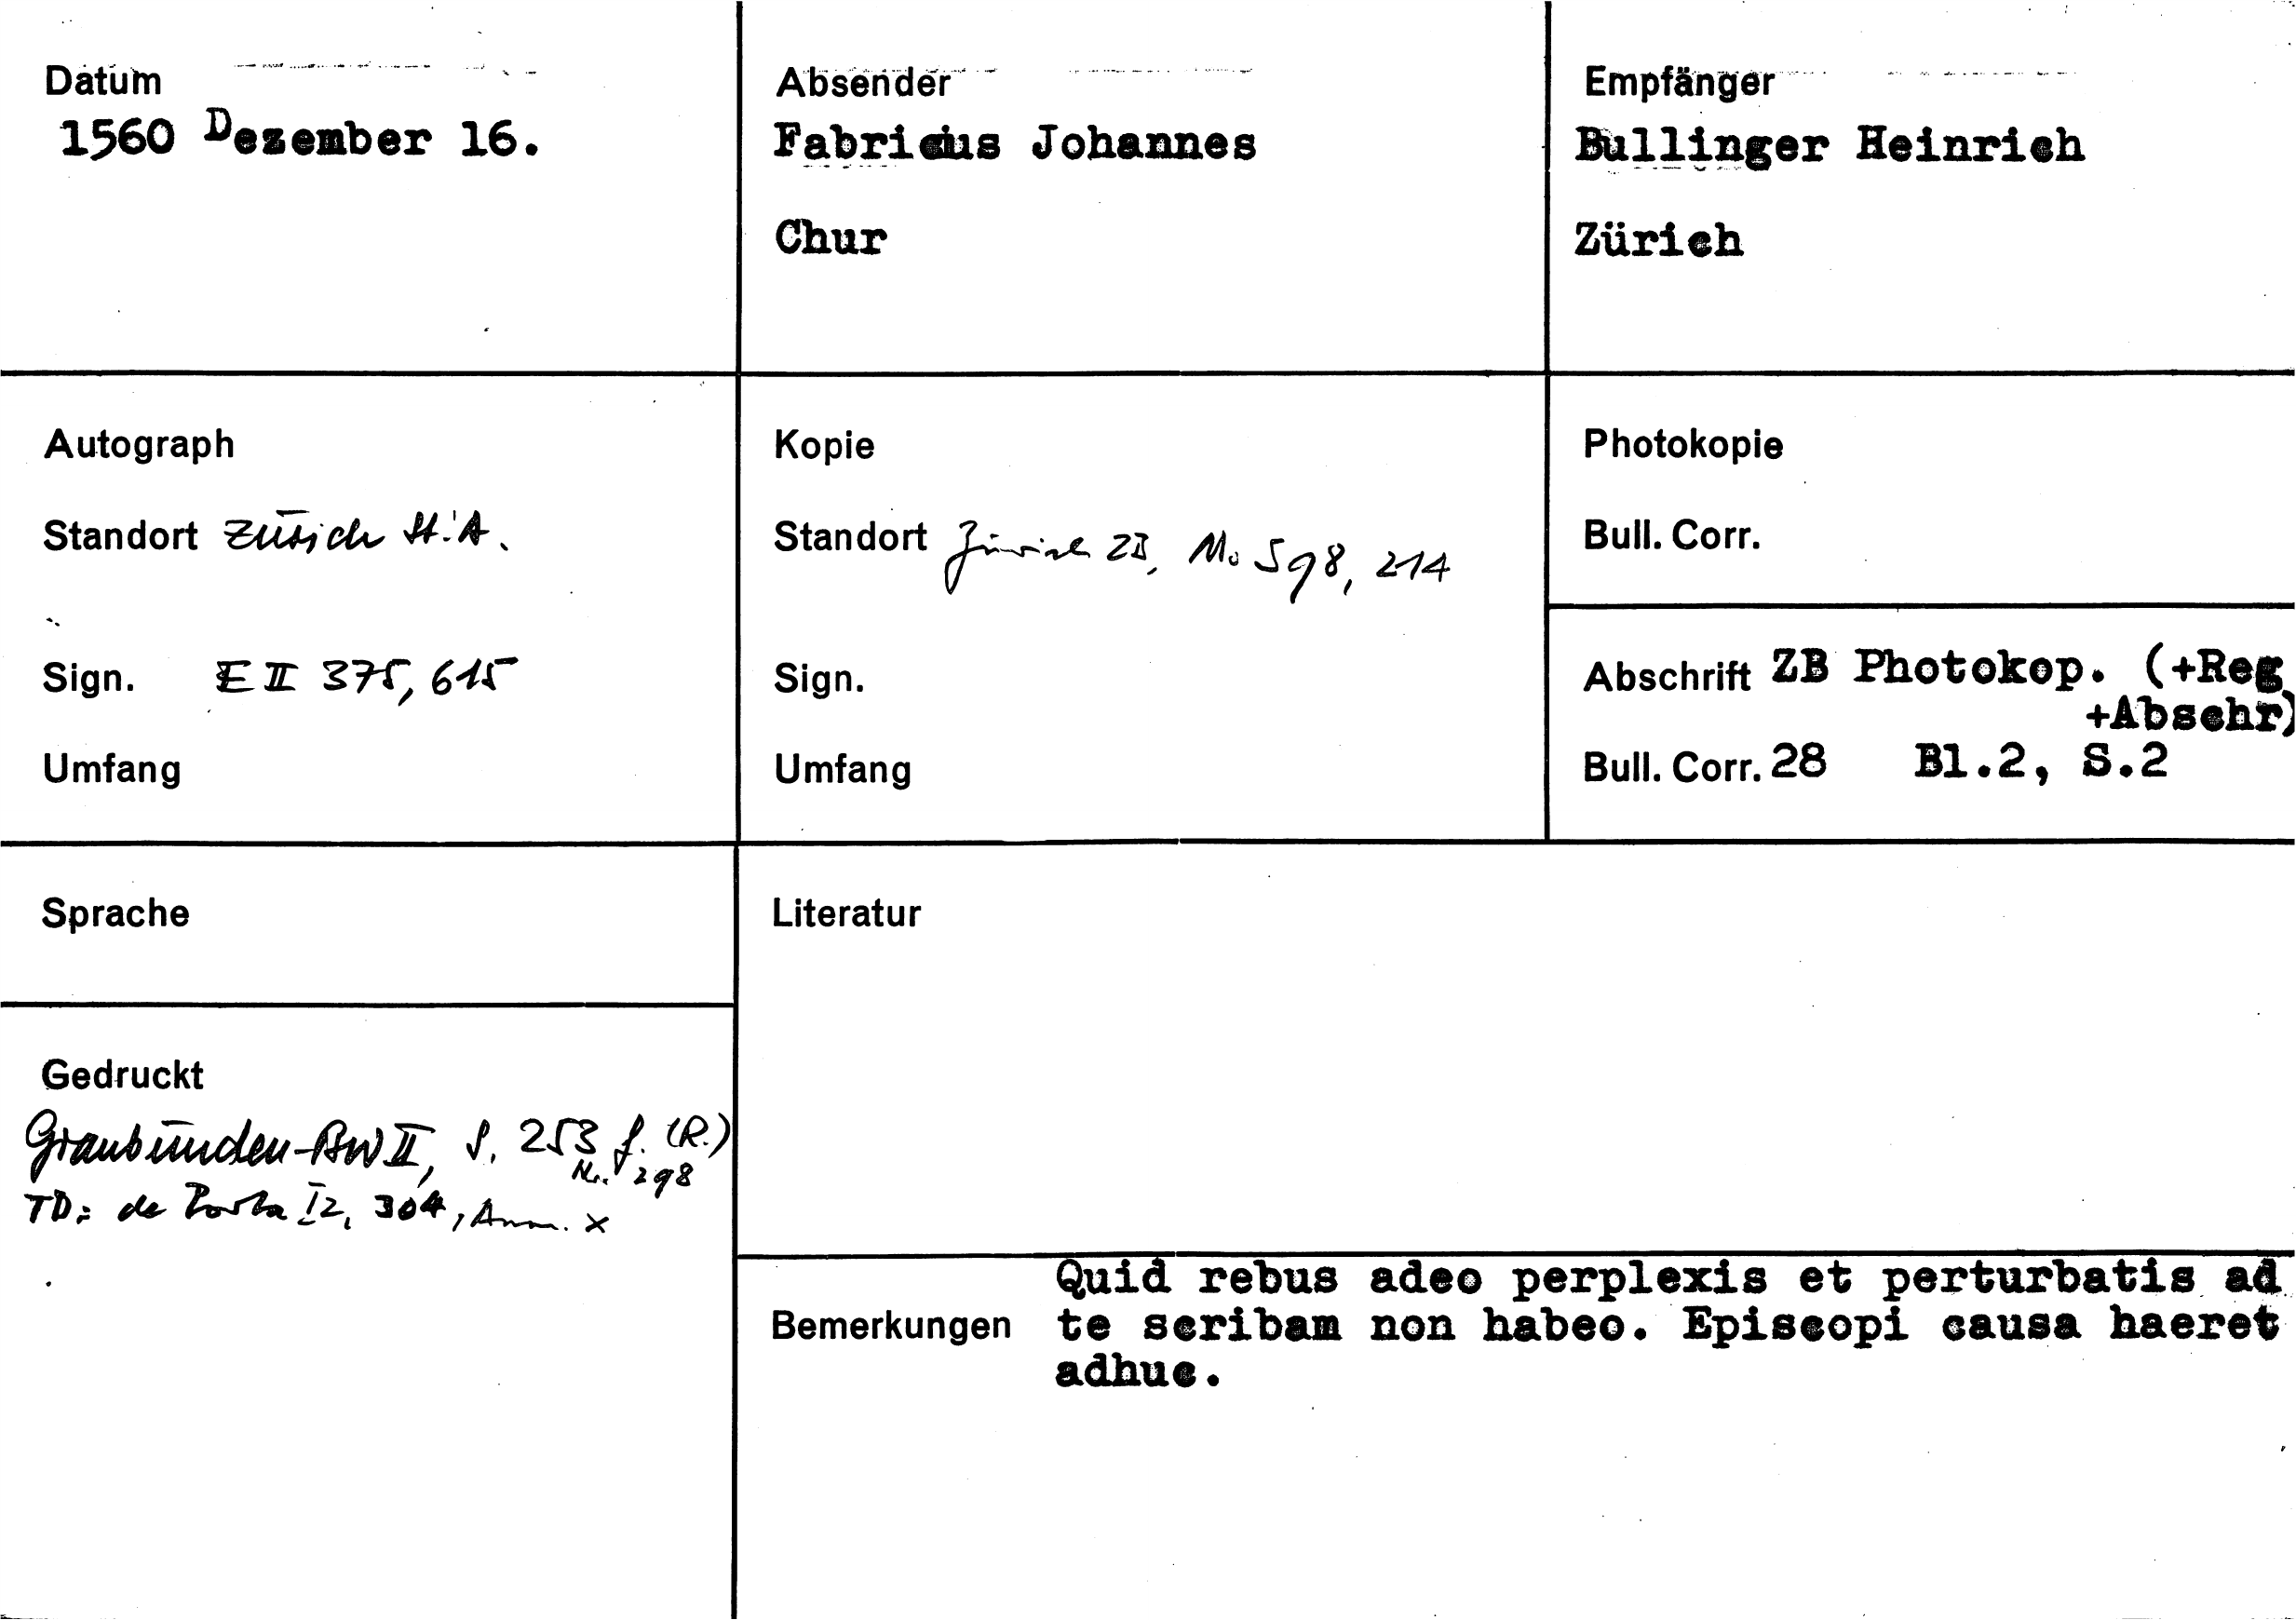 Datum
1560 Dezember 16.
Absender
Fabricius Johannes
Chur
Empfänger
Bullinger Heinrich
Zürich
Autograph
Standort Zürich St.A.
Sign. E II 375, 615
Umfang
Kopie
Standort Zürich ZB, Ms S 98, 214
Sign.
Umfang
Photokopie
Bull. Corr.
Abschrift ZB Photokop. (+Reg
+Abschr)
Bull. Corr. 28 Bl.2, S.2
Sprache
Gedruckt
Graubünden-BW II, S. 253 f. (R.)
Nr. 298
TD: de Porta I2, 304, Anm. x
Literatur
Bemerkungen
Quid rebus adeo perplexis et perturbatis ad
te scribam non habeo. Episcopi causa haeret
adhuc.